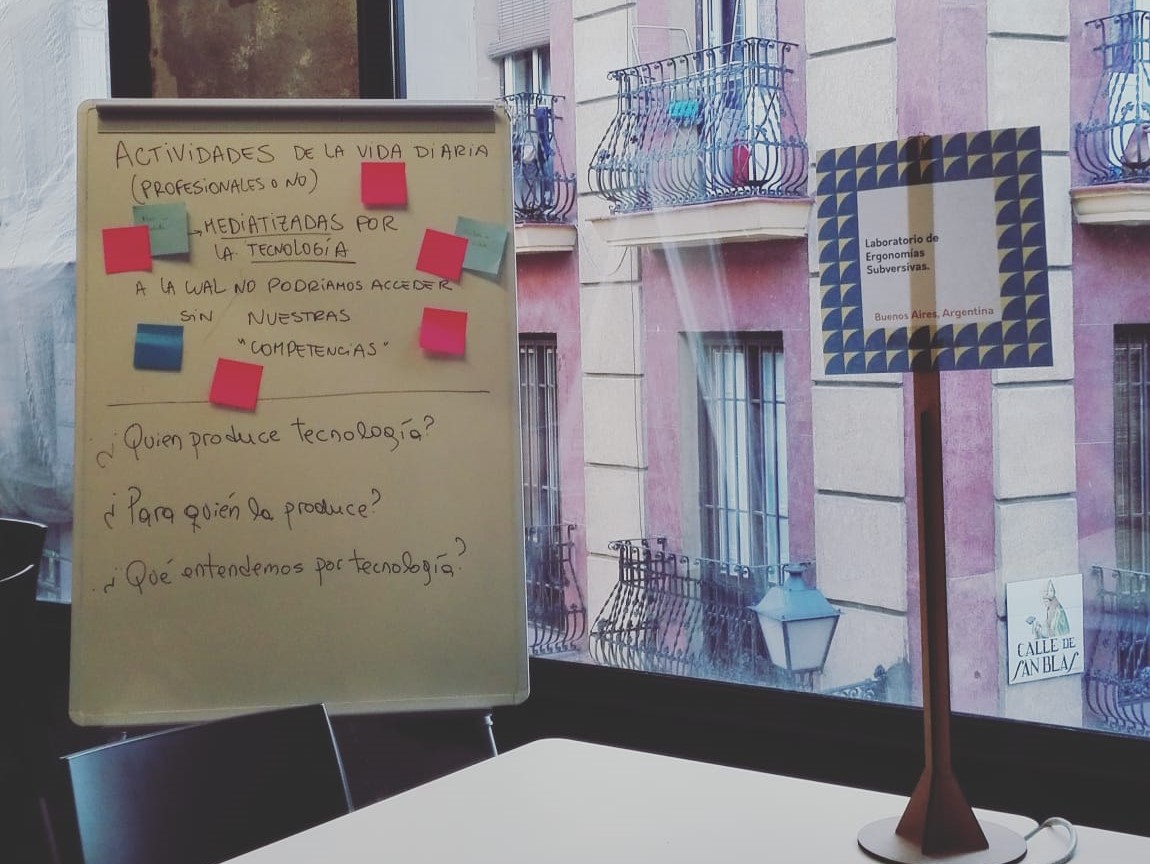 ACTIVIDADES DE LA VIDA DIARIA
(PROFESIONALES O NO)
MEDIATIZADAS POR
LA TECNOLOGÍA
A LA CUAL NO PODRÍAMOS ACCEDER
SIN NUESTRAS
"COMPETENCIAS"
¿Quien produce tecnología?
¿Para quién la produce?
¿Qué entendemos por tecnología?
Laboratorio de
Ergonomías
Subversivas.
Buenos Aires, Argentina
CALLE DE
SAN BLAS